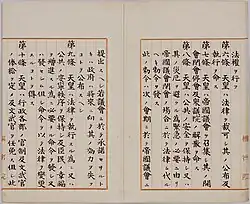 法權ヲ行フ
第六條 天皇ハ法律ヲ裁可シ其ノ公布及
執行ヲ命ス
第七條 天皇ハ帝國議會ヲ召集シ其ノ開
會閉會停會及衆議院ノ解散ヲ命ス
第八條 天皇ハ公共ノ安全ヲ保持シ又ハ
其ノ災厄ヲ避クル爲緊急ノ必要ニ由リ
帝國議會閉會ノ場合ニ於テ法律ニ代ル
ヘキ勅令ヲ發ス
此ノ勅令ハ次ノ會期ニ於テ帝國議會ニ
提出スヘシ若議會ニ於テ承諾セサルト
キハ政府ハ將來ニ向テ其ノ効力ヲ失フ
コトヲ公布スヘシ
第九條 天皇ハ法律ヲ執行スル爲ニ又ハ
公共ノ安寧秩序ヲ保持シ及臣民ノ幸福
ヲ增進スル爲ニ必要ナル命令ヲ發シ又
ハ發セシム但シ命令ヲ以テ法律ヲ變更
スルコトヲ得ス
第十條 天皇ハ行政各部ノ官制及文武官
ノ俸給ヲ定メ及文武官ヲ任免ス但シ此